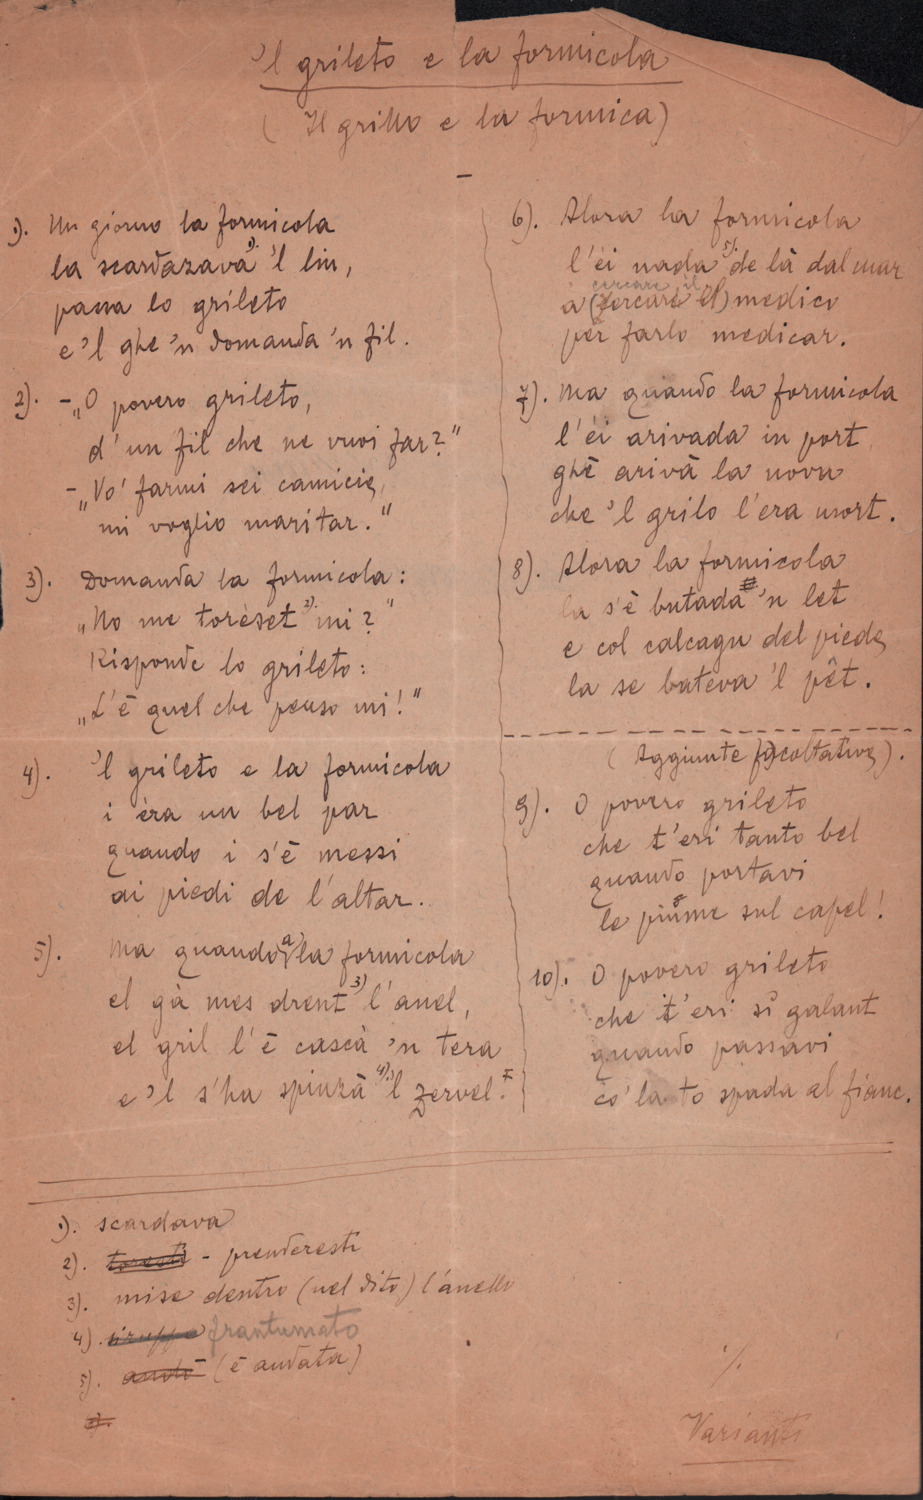 'l grileto e la formicola
( Il grillo e la formica)
1). Un giorno la formicola
la scardazava 1). 'l lin,
passa lo grileto
e 'l ghe 'n domanda 'n fil.
2). - „O povero grileto,
d' un fil che ne vuoi far?"
- „Vo' farmi sei camicie,
mi voglio maritar."
3). Domanda la formicola:
„No me torèset 2). mi?"
Risponde lo grileto:
„L'è quel che penso mi!"
4). 'l grileto e la formicola
i èra un bel par
quando i s'è messi
ai piedi de l'altar.
5). Ma quando a la formicola
el gà mes drent 3) l'anel,
el gril l'è cascà 'n tera
e 'l s'ha spinzà 4). 'l zervel.
6). Alora la formicola
l'èi nada 5). de là dal mar
a (cercare il) medico
per farlo medicar.
7). Ma quando la formicola
l'èi arivada in port
ghè arivà la nova
che 'l grilo l'era mort.
8). Alora la formicola
la s'è butada 'n let
e col calcagn del piede
la se bateva 'l pêt.
( Aggiunte facoltative ).
9). O povero grileto
che t'eri tanto bel
quando portavi
le piume sul capel!
10). O povero grileto
che t'eri sì galant
quando passavi
co' la to spada al fianc.
1). scardava
2). - prenderesti
3). mise dentro (nel dito) l'anello
4). frantumato
5). andò (è andata)
./.
Varianti